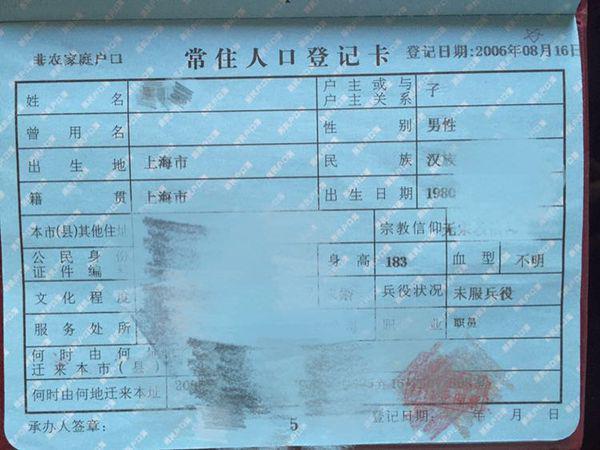 非农家庭户口 常住人口登记卡 登记日期:2006年08月16日
姓 名 户主或与户主关系 子
曾用名 性 别 男性
出生地 上海市 民 族 汉族
籍 贯 上海市 出生日期 1980
本市(县)其他住址 宗教信仰 无
公民身份证件编 身高 183 血型 不明
文化程度 兵役状况 未服兵役
服务处所 职业 职员
何时由何
迁来本市(县)
何时由何地迁来本址
承办人签章: 5 登记日期: 年 月 日